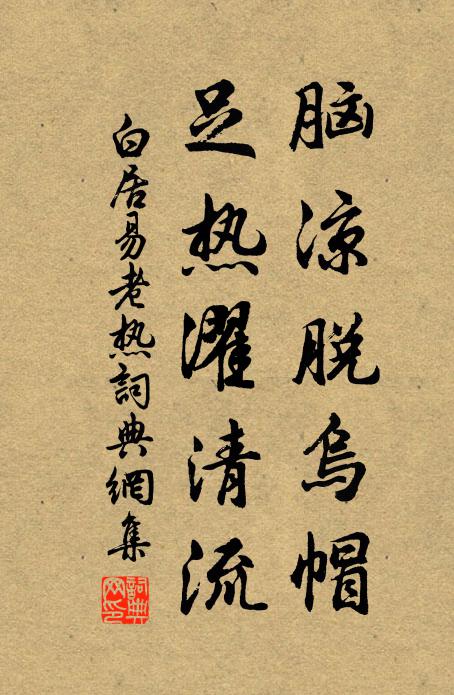 脑凉脱乌帽
足热濯清流
白居易老热詞典網集
詞典网印